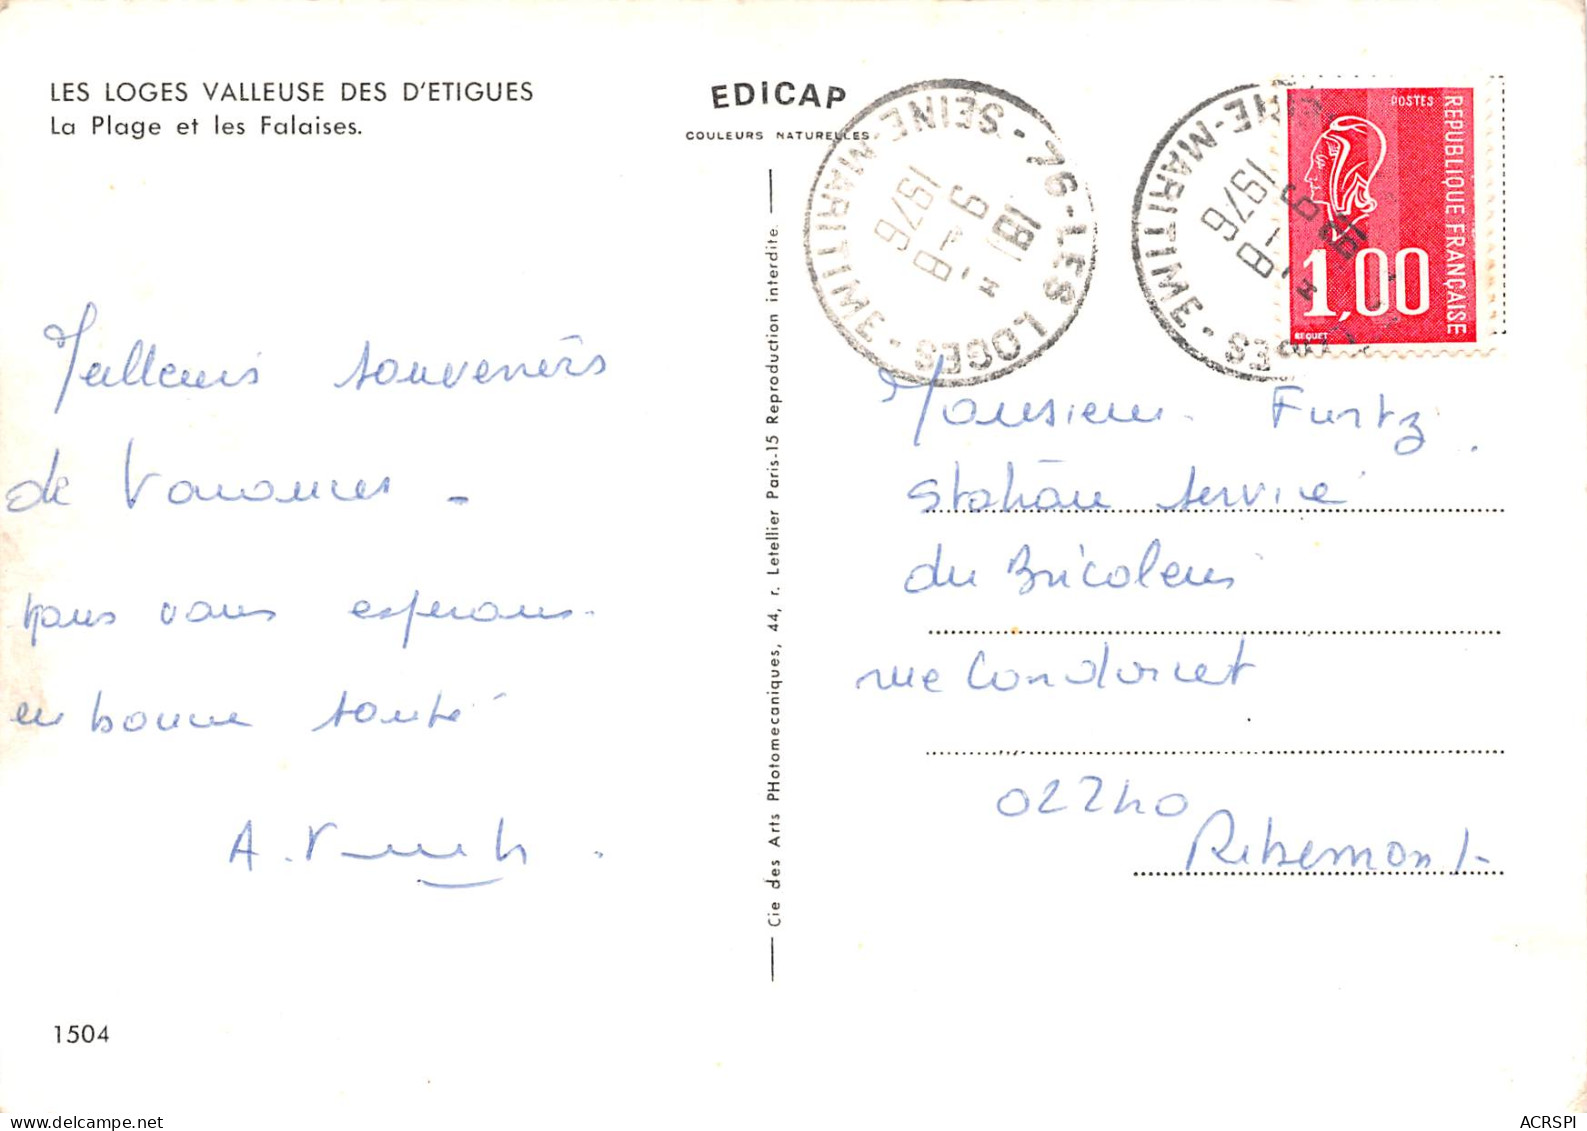 LES LOGES VALLEUSE DES D'ETIGUES
La Plage et les Falaises.
EDICAP
COULEURS NATURELLES
76-LES LOGES - SEINE-MARITIME -
18H
9-8
1976
SEINE-MARITIME - LOGES
18H
9-8
1976
POSTES
REPUBLIQUE FRANÇAISE
1,00
BEQUET
Meilleurs souvenirs
de Vacances -
nous vous esperons
en bonne santé
A.
Monsieur Furtz
Station service
du Bricoleur
rue Condorcet
02240
Ribemont
Cie des Arts PHotomecaniques, 44, r. Letellier Paris-15 Reproduction interdite.
1504
ACRSPI